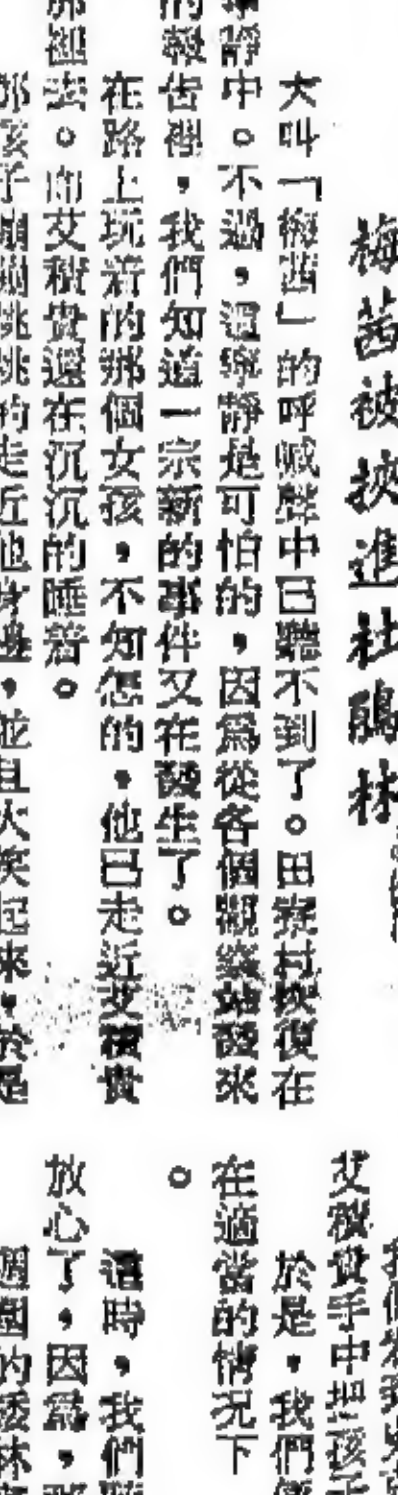 梅茜被挾進杜鵑林
大叫「梅茜」的呼喊聲中已聽不到了。田寮村恢復在
靜中。不過,這寧靜是可怕的,因爲從各個觀察站發來
的報告裡,我們知道一宗新的事件又在發生了。
在路上玩着的那個女孩,不知怎的,他已走近艾積貴
那裡去。而艾積貴還在沉沉的睡着。
那孩子蹦蹦跳跳的走近他身邊,並且大笑起來,於是
艾積貴手中把孩子
於是,我們
在適當的情況下
。
這時,我們
放心了,因爲,
週圍的